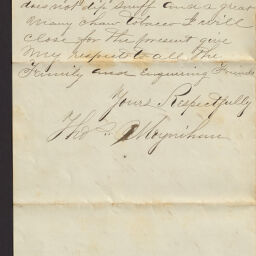 does not dip snuff and a great
many chaw tobacco I will
close for the present give
my respects to all the
Family and enquiring Friends
Yours Respectfully
Thos. Moynihan